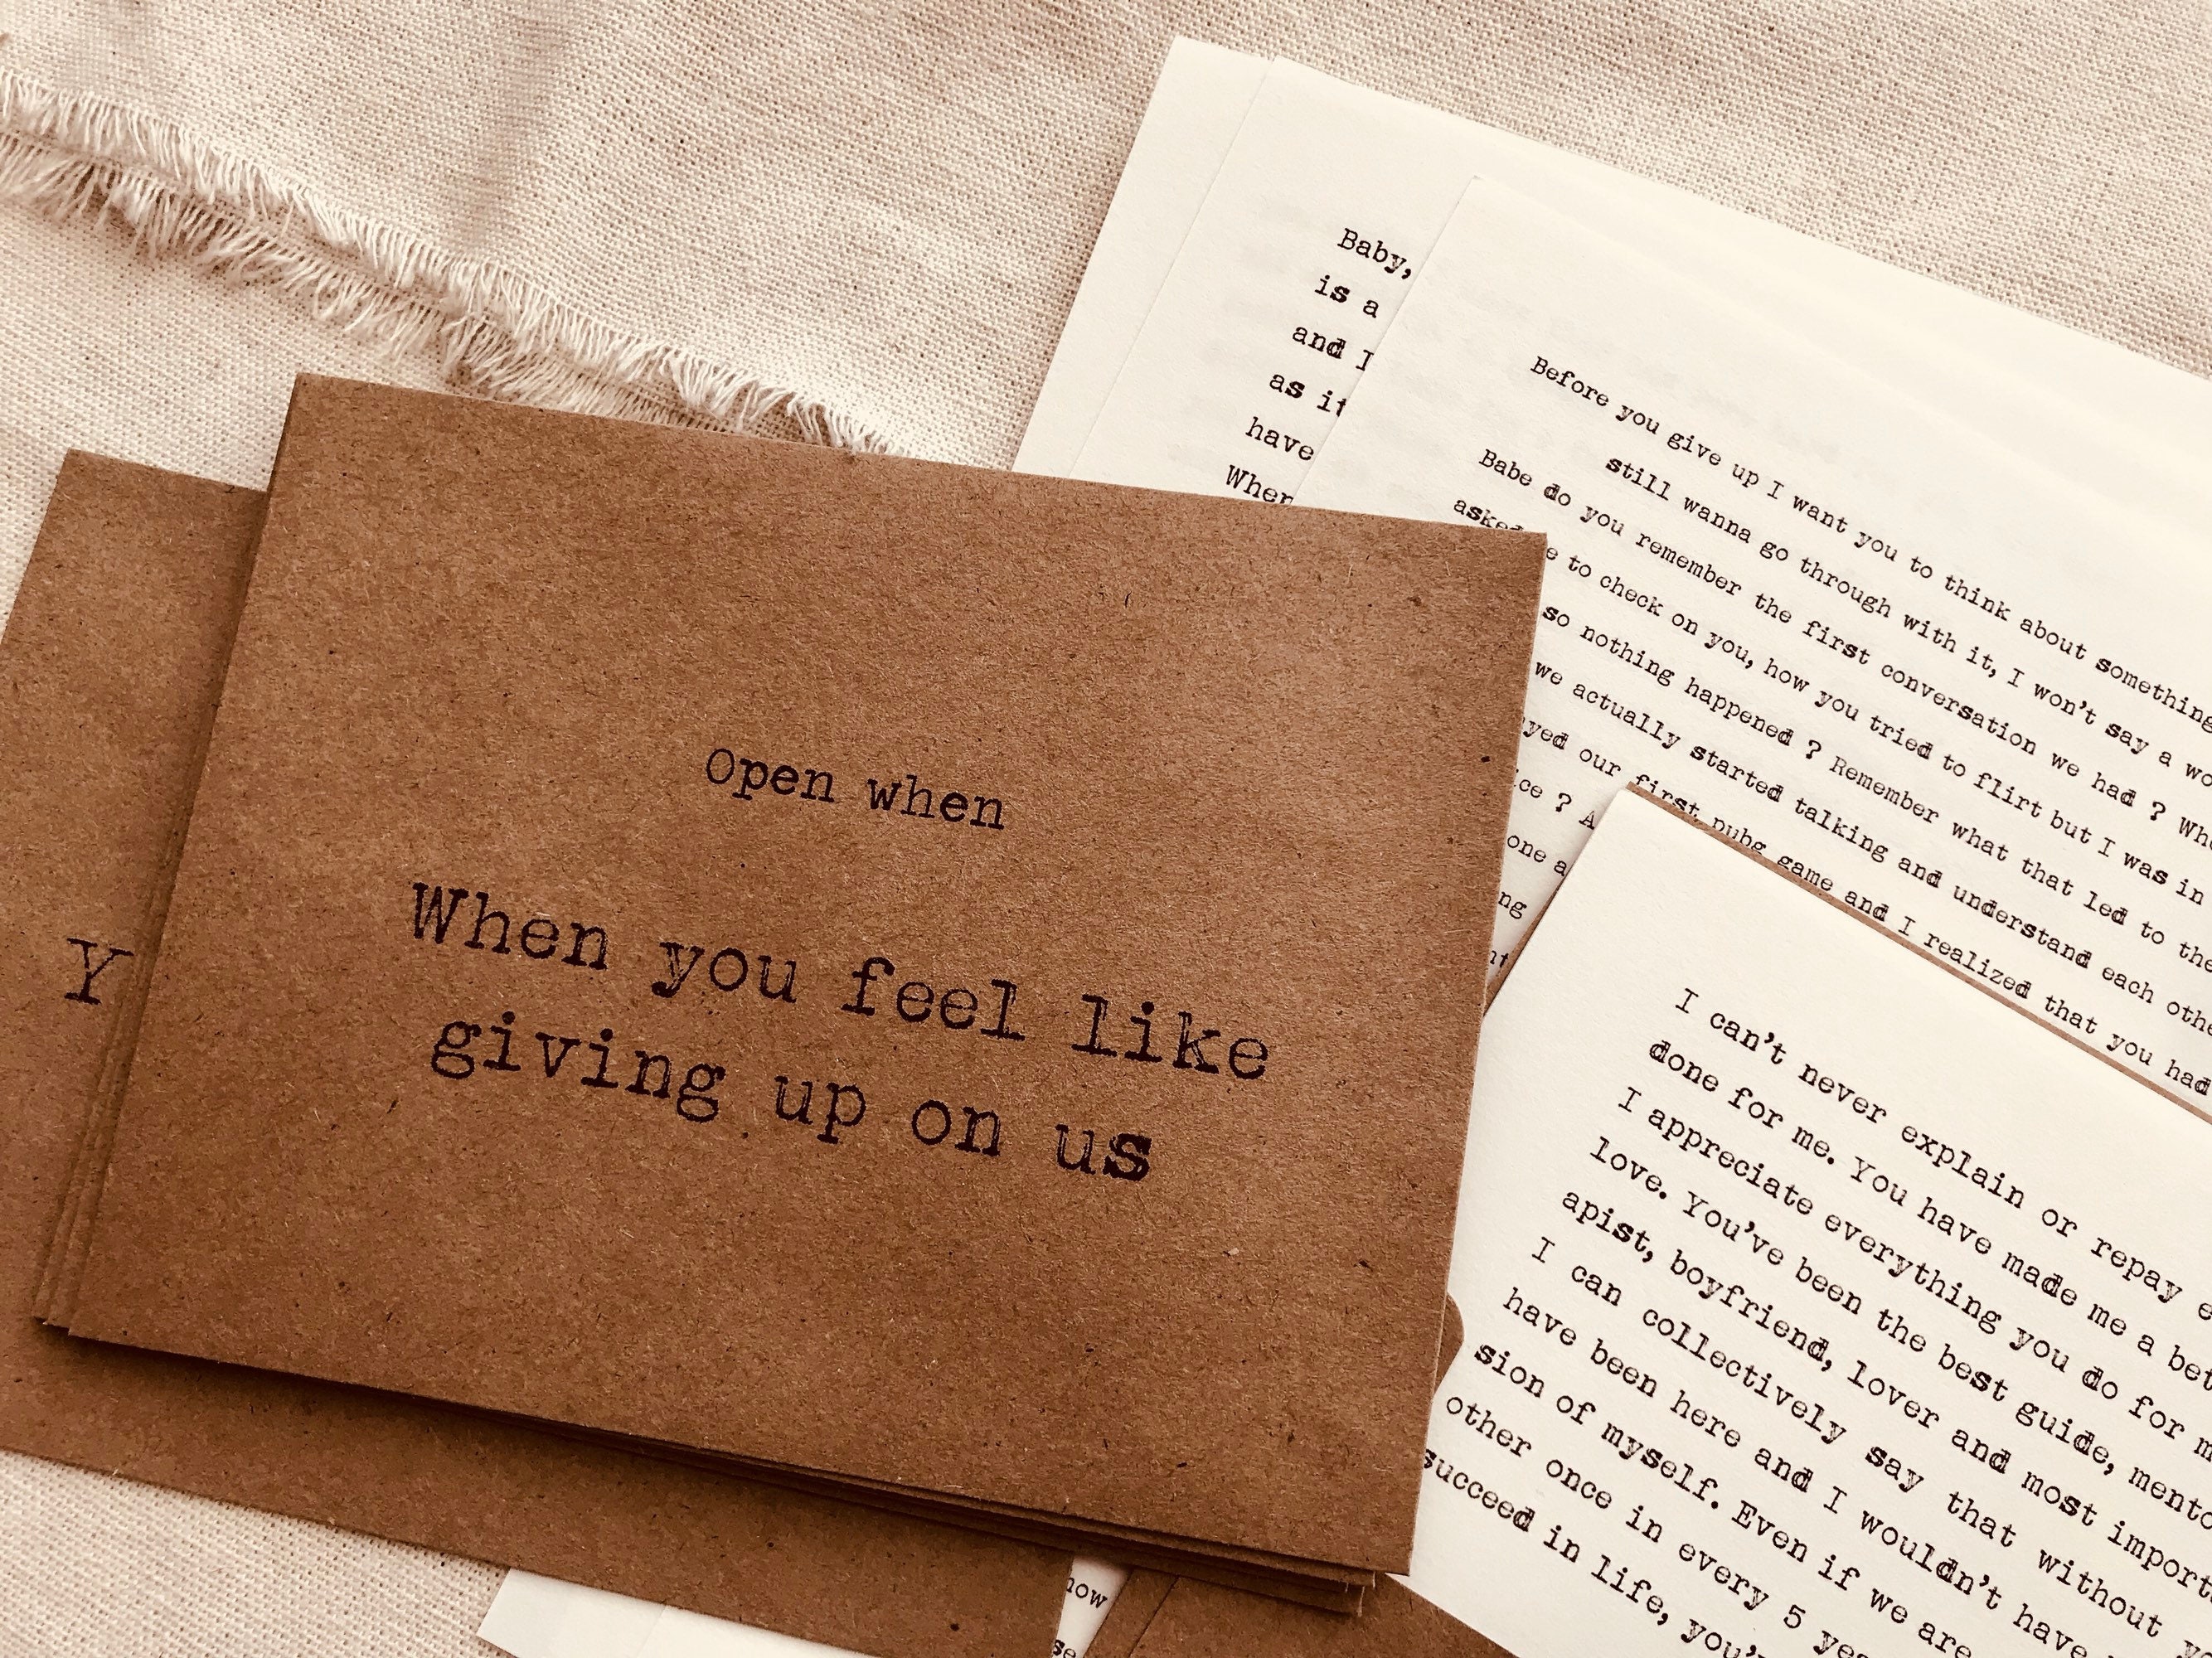 Open when
When you feel like
giving up on us
Y
Baby,
is a
and I
as it
have
When
Before you give up I want you to think about something
still wanna go through with it, I won't say a
Babe do you remember the first conversation we had ?
asked
to check on you, how you tried to flirt but I was in
so nothing happened ? Remember what that led to the
we actually started talking and understand each
our first pubg game and I realized that you had
? A
one
I can't never explain or repay
done for me. You have made me a
I appreciate everything you do for
love. You've been the best guide,
apist, boyfriend, lover and most
I can collectively say that without
have been here and I wouldn't have
sion of myself. Even if we are
other once in every 5
succeed in life,